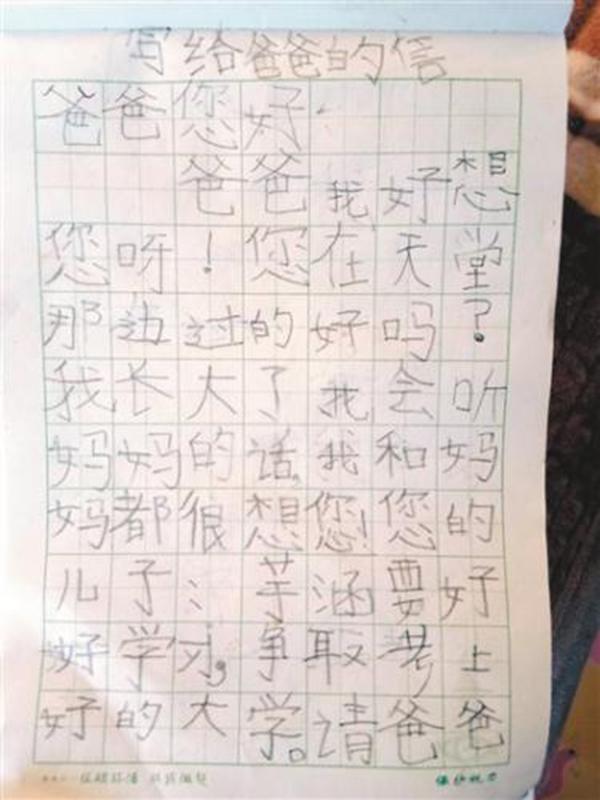 写给爸爸的信
爸爸您好
爸爸我好想
您呀！您在天堂
那边过的好吗？
我长大了我会听
妈妈的话,我和妈
妈都很想您!您的
儿子：芋涵要好
好学习,争取考上
好的大学。请爸爸